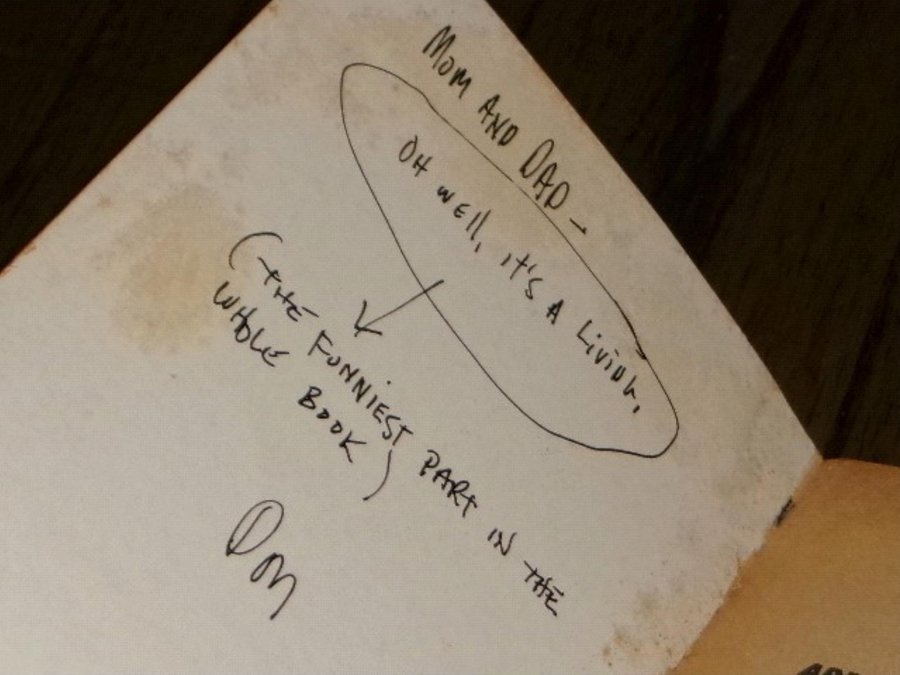 MOM AND DAD –
OH WELL, IT'S A LIVING,
(THE FUNNIEST PART IN THE
WHOLE BOOK)